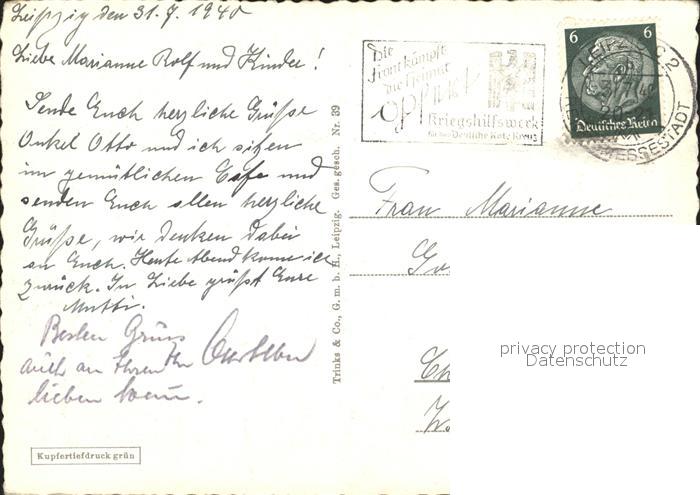 Leipzig den 31.7.1940
Liebe Marianne Rolf und Kinder!
Sende Euch herzliche Grüße
Onkel Otto und ich sitzen
im gemütlichen Cafe und
senden Euch allen herzliche
Grüße, wir denken dabei
an Euch. Heute Abend komme ich
zurück. In Liebe grüßt Eure
Mutti.
Besten Gruss
auch an Ihren
lieben
Kupfertiefdruck grün
Trinks & Co., G. m. b. H., Leipzig. Ges. gesch. Nr. 39
Die
Front kämpft
die Heimat
opfert
Kriegshilfswerk
für das Deutsche Rote Kreuz
6 6
Deutsches Reich
LEIPZIG C2
MESSESTADT
Frau Marianne
privacy protection
Datenschutz